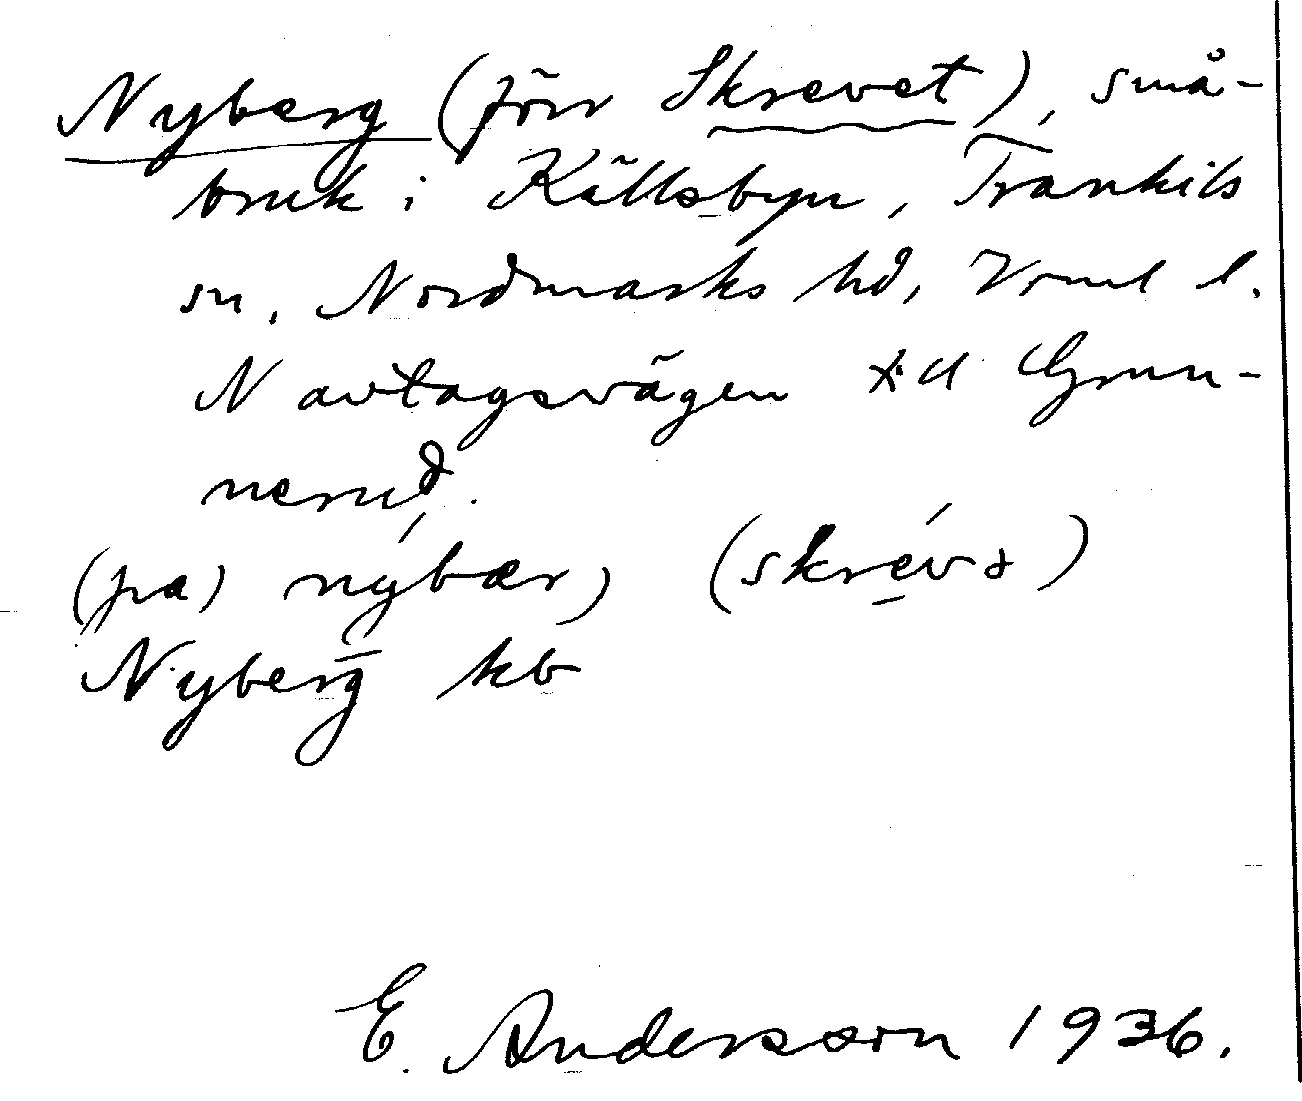 Nyberg (förr Skrevet), små-
bruk i Källsbyn, Trankils
sn, Nordmarks hd, Vrml l.
N avtagsvägen t.ll Grun-
nerud.
(pa) nýbær, (skrévə)
Nyberg kb
E. Andersson 1936.